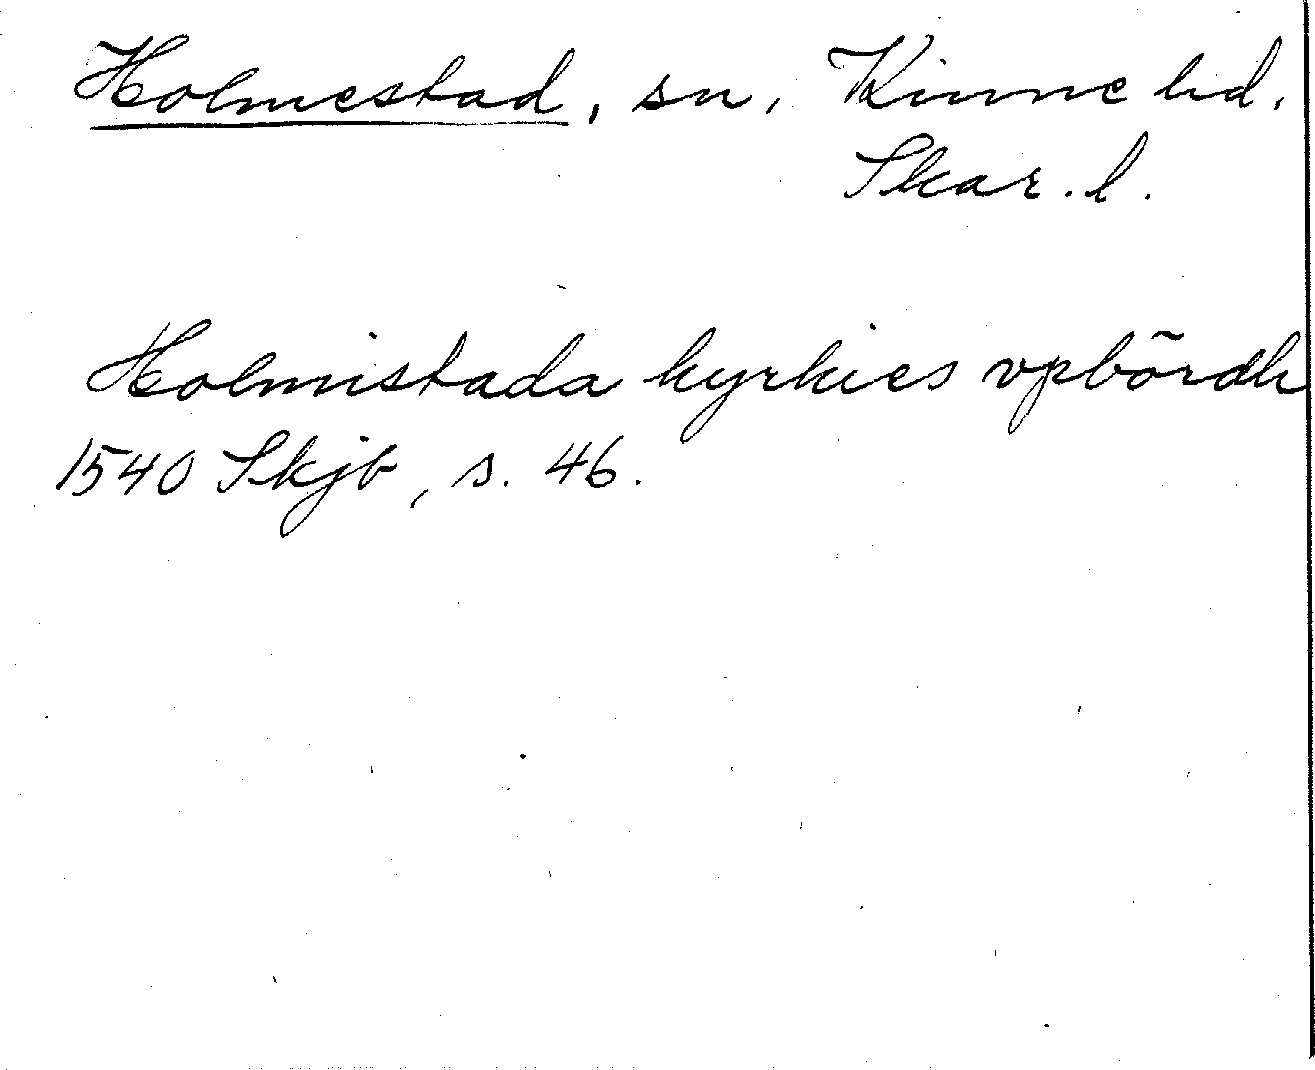 Holmestad, sn, Kinne hd,
Skar. l.
Holmistada kyrkies vpbördh
1540 Skjb, s. 46.